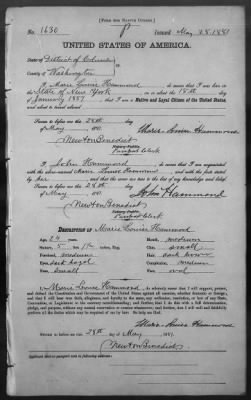 [FORM FOR NATIVE CITIZEN.]
No. 1630 Issued May 28. 1881
UNITED STATES OF AMERICA.
State of District of Columbia
County of Washington
I, Marie Louise Hammond, do swear that I was born in
the State of New York, on or about the 18th day
of January 1857; that I am a Native and Loyal Citizen of the United States,
and about to travel abroad.
Sworn to before me this 28th day
of May, 1881. Marie Louise Hammond
Newton Benedict
Passport Clerk
I, John Hammond, do swear that I am acquainted
with the above-named Marie Louise Hammond, and with the facts stated
by her, and that the same are true to the best of my knowledge and belief.
Sworn to before me this 28th day
of May, 1881. John Hammond
Newton Benedict
Passport Clerk
DESCRIPTION OF Marie Louise Hammond
Age: 24 years. Mouth: medium
Stature: 5 feet, inches, Eng. Chin: small
Forehead: medium Hair: dark brown
Eyes: dark hazel Complexion: medium
Nose: small Face: oval
I, Marie Louise Hammond, do solemnly swear that I will support, protect,
and defend the Constitution and Government of the United States against all enemies, whether domestic or foreign;
and that I will bear true faith, allegiance, and loyalty to the same, any ordinance, resolution, or law of any State,
Convention, or Legislature to the contrary notwithstanding; and further, that I do this with a full determination,
pledge, and purpose, without any mental reservation or evasion whatsoever; and further, that I will well and
faithfully perform all the duties which may be required of me by law: So help me God.
Marie Louise Hammond
Sworn to before me this 28th day of May, 1881.
Newton Benedict